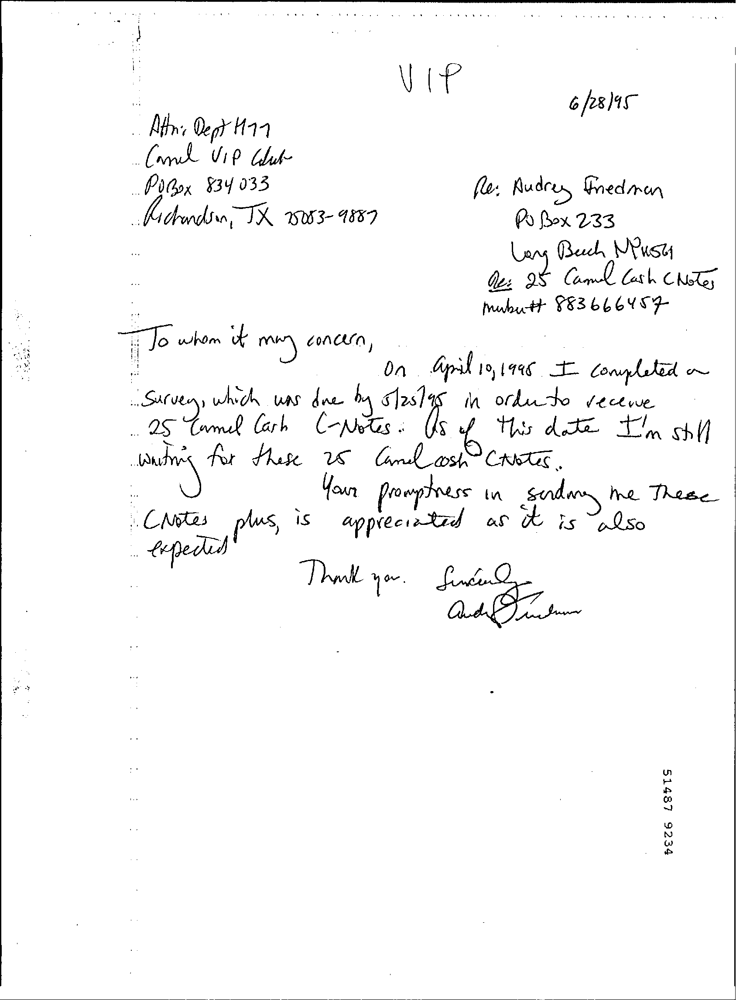 VIP
6/28/95
Attn: Dept H77
Camel VIP Club
PO Box 834033
Richardson, TX 75083-9887
Re: Audrey Friedman
PO Box 233
Long Beach NY 11561
Re: 25 Camel Cash C Notes
883666457
To whom it may concern,
On April 10, 1995 I completed a
survey, which was due by 5/25/95 in order to receive
25 Camel Cash C-Notes. As of this date I'm still
waiting for these 25 Camel cash CNotes.
Your promptness in sending me These
CNotes plus, is appreciated as it is also
expected
Thank you. Sincerely
Audr Friedman
51487 9234